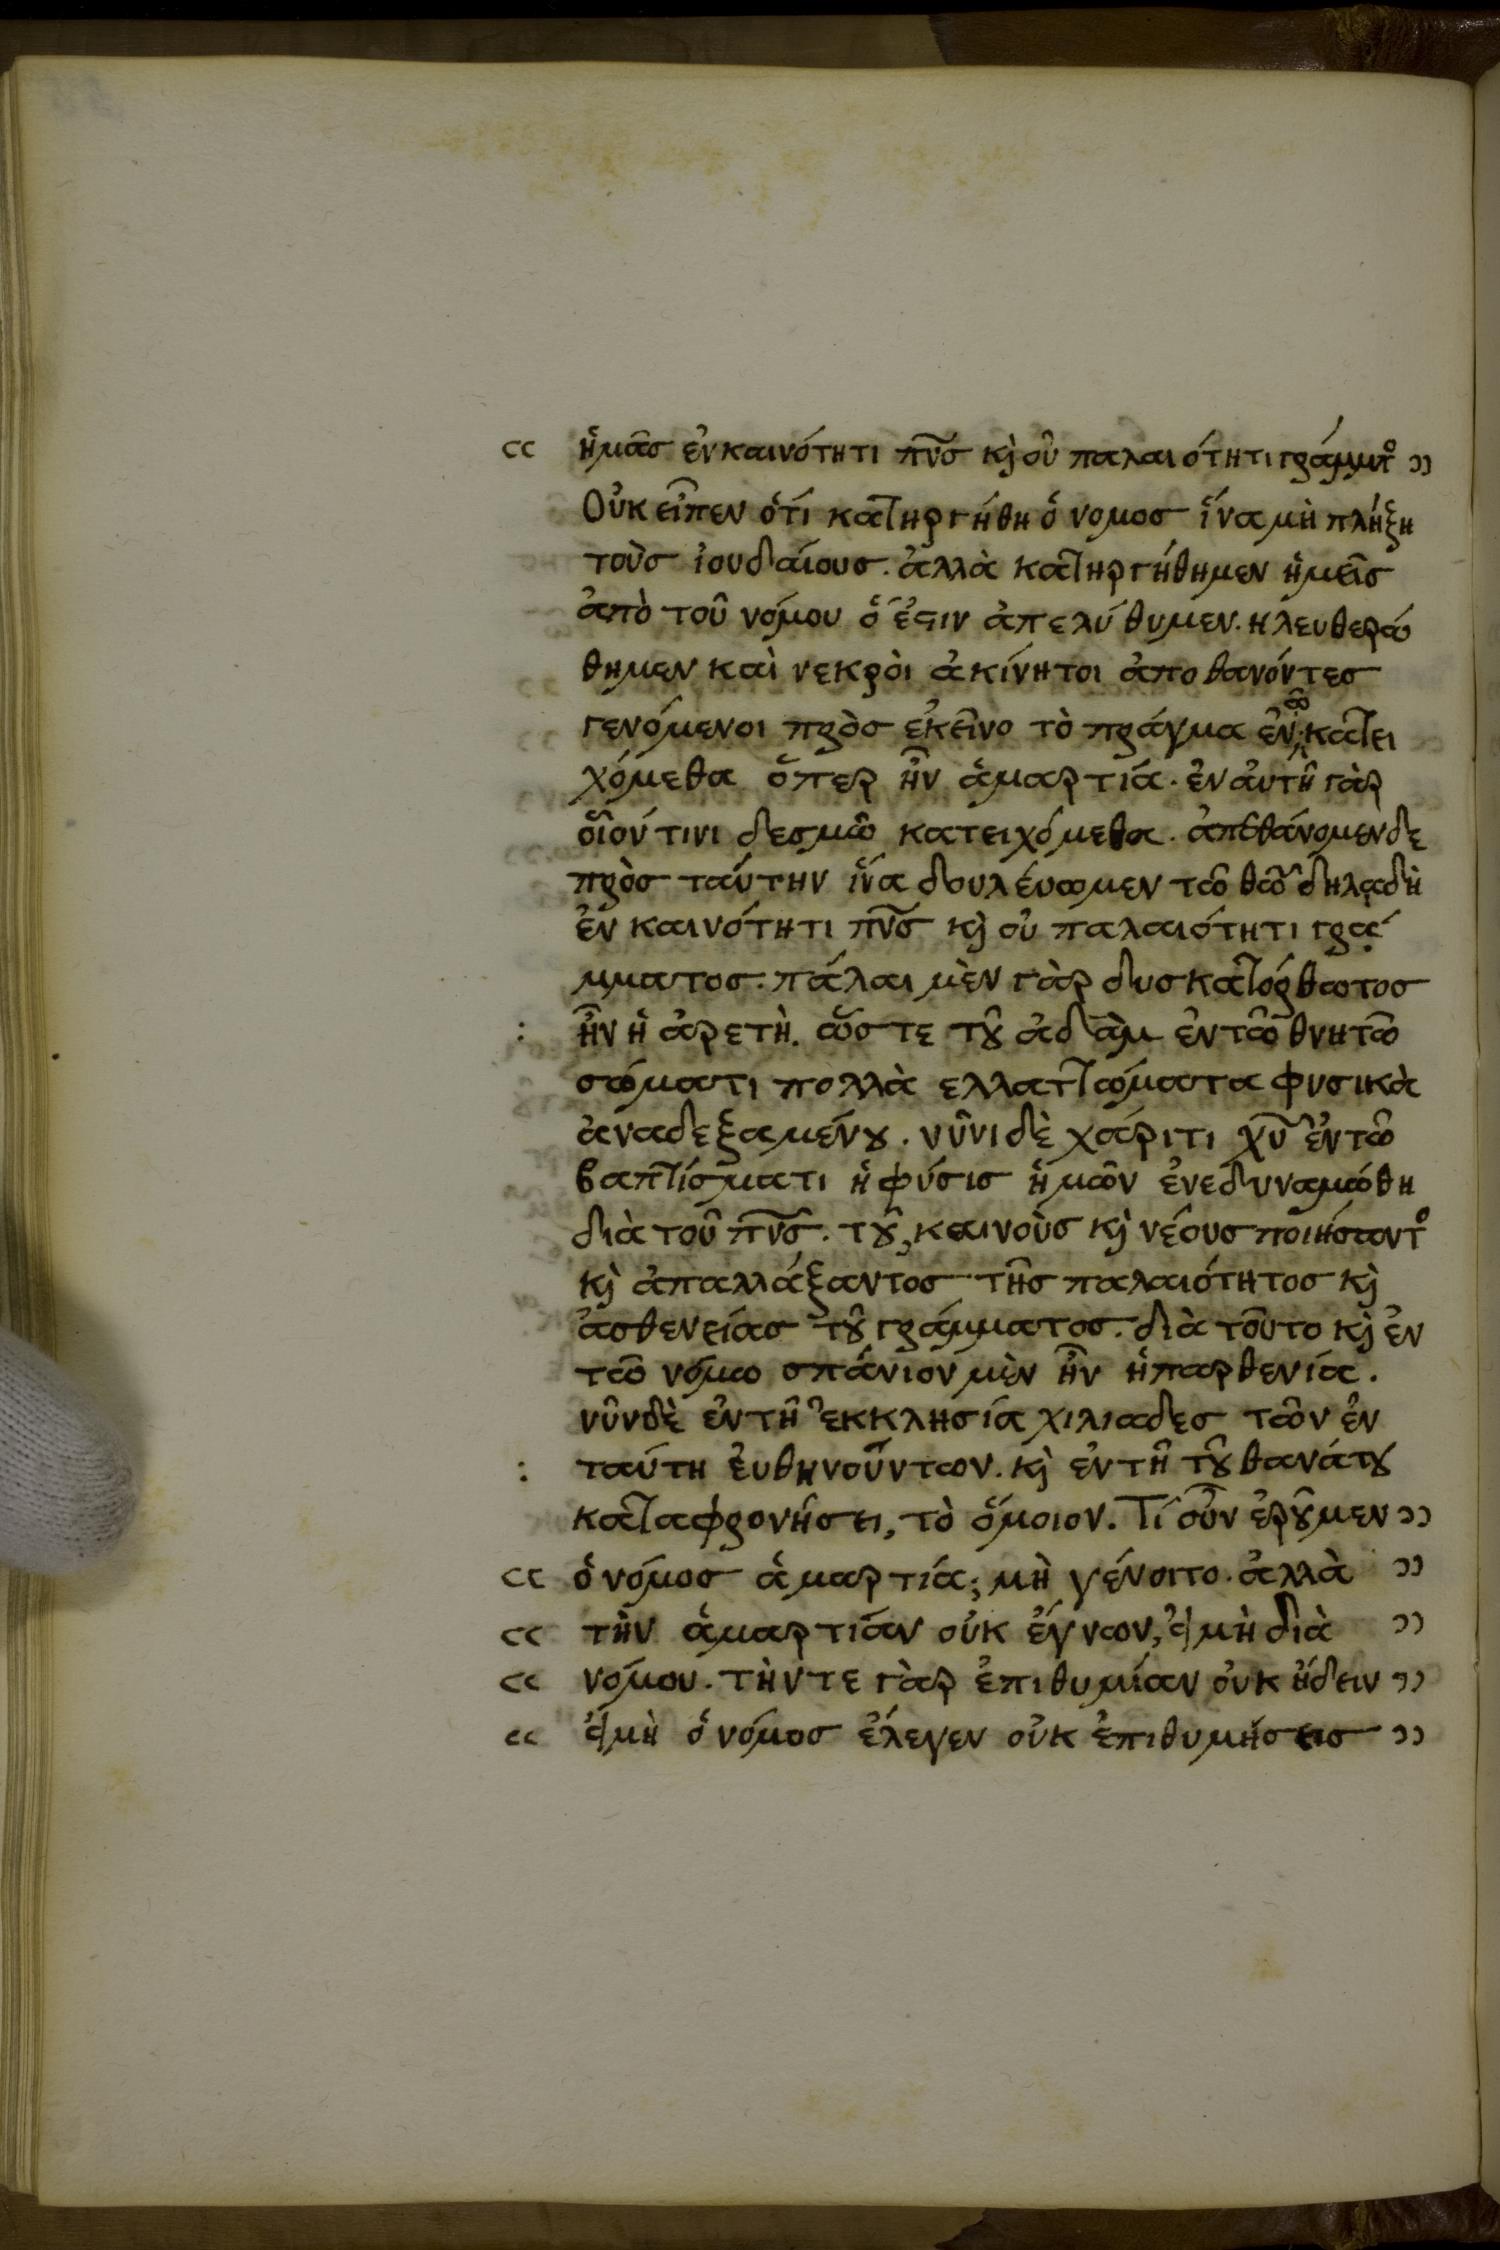 ἡμᾶς ἐν καινότητι πν̅ς κ̀ οὐ παλαιότητι γράμμτ̊
Οὐκ εἶπεν ὅτί κατηργήθη ὁ νομος ἵνα μὴ πλήξη
τοὺς ἰουδαίους. ἀλλὰ κατηργήθημεν ἡμεῖς
ἀπὸ τοῦ νόμου ὅ ἐϛιν ἀπελύθυμεν. ηλευθερώ
θημεν καὶ νεκρὸι ἀκίνητοι ἀποθανόντες
γενόμενοι πρὸς ἐκεῖνο τὸ πράγμα ἐν ῶ κατει
χόμεθα ὅπερ ἦν ἁμαρτία. ἐν ἀυτῆ γὰρ
οἷόν τινι δεσμῶ κατειχόμεθα. ἀπεθάνομεν δε
πρὸς ταύτην ἵνα δουλέυωμεν τῶ θῶ δηλαδὴ
ἐν καινότητι πν̅ς κ̀ οὐ παλαιότητι γρά
μματος. πάλαι μὲν γὰρ δυσκατόρθωτος
: ἦν ἡ ἀρετὴ. ὥστε τȣ̃ ἀδὰμ ἐν τῶ θνητῶ
σώματι πολλὰ ελλαττώματα φυσικὰ
ἀναδεξαμένȣ. νῦνι δὲ χάριτι χυ̅ ἐν τῶ
βαπτίσματι ἡ φύσις ἡμῶν ἐνεδυναμώθη
διὰ τοῦ πν̅ς. τȣ̃, καινοὺς κ̀ νέους ποιήσαντ̊
κ̀ ἀπαλλάξαντος τῆς παλαιότητος κ̀
ἀσθενείας τȣ̃ γράμματος. διὰ τοῦτο κ̀ ἐν
τῶ νόμω σπάνιον μὲν ἦν ἡ παρθενία.
νῦν δὲ ἐν τῆ ἐκκλησία χιλιαδες τῶν ἐν
: ταύτη ἐυθηνούντων. κ̀ ἐν τῆ τȣ̃ θανάτȣ
καταφρονήσει, τὸ ὅμοιον. Τί οὖν ἐρȣ̃μεν
ὁ νόμος ἁμαρτία; μὴ γένοιτο. ἀλλὰ
τὴν ἁμαρτίαν οὐκ ἔγνων, εἰ μὴ διὰ
νόμου. τήν τε γὰρ ἐπιθυμίαν οὐκ ἤδειν
εἰ μὴ ὁ νόμος ἔλεγεν οὐκ ἐπιθυμήσεις